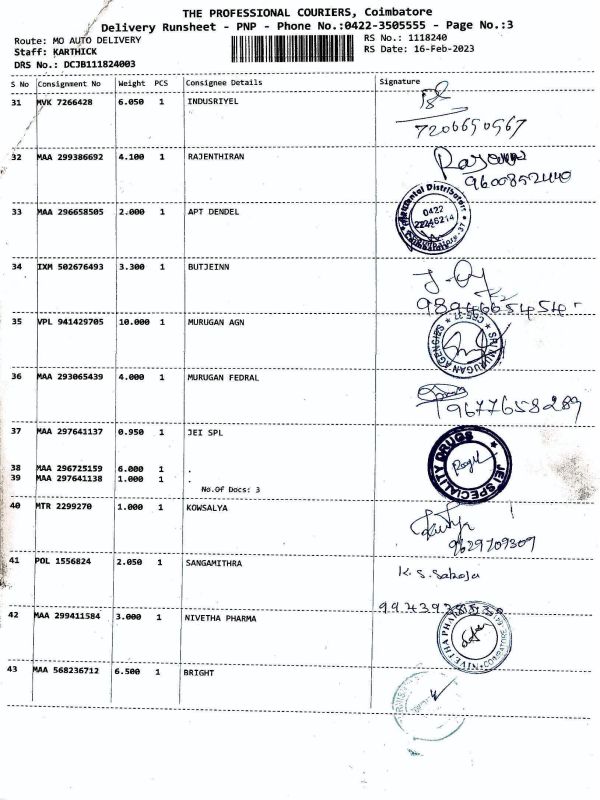 THE PROFESSIONAL COURIERS, Coimbatore
Delivery Runsheet - PNP - Phone No.:0422-3505555 - Page No.:3
Route: MO AUTO DELIVERY
RS No.: 1118240
Staff: KARTHICK
RS Date: 16-Feb-2023
DRS No.: DCJB111824003
S No Consignment No Weight PCS Consignee Details Signature
31 MVK 7266428 6.050 1 INDUSRIYEL
7206690567
32 MAA 299386692 4.100 1 RAJENTHIRAN
9600852440
33 MAA 296658505 2.000 1 APT DENDEL
Distributors
0422
34 IXM 502676493 3.300 1 BUTJEINN
35 VPL 941429705 10.000 1 MURUGAN AGN
SRI MURUGAN AGENCIES
36 MAA 293065439 4.000 1 MURUGAN FEDRAL
9677658289
37 MAA 297641137 0.950 1 JEI SPL
JEI SPECIALITY DRUGS
38 MAA 296725159 6.000 1 .
39 MAA 297641138 1.000 1 .
No.Of Docs: 3
40 MTR 2299270 1.000 1 KOWSALYA
9629709309
41 POL 1556824 2.050 1 SANGAMITHRA
K. S. Saroja
42 MAA 299411584 3.000 1 NIVETHA PHARMA
NIVETHA PHARMA
43 MAA 568236712 6.500 1 BRIGHT